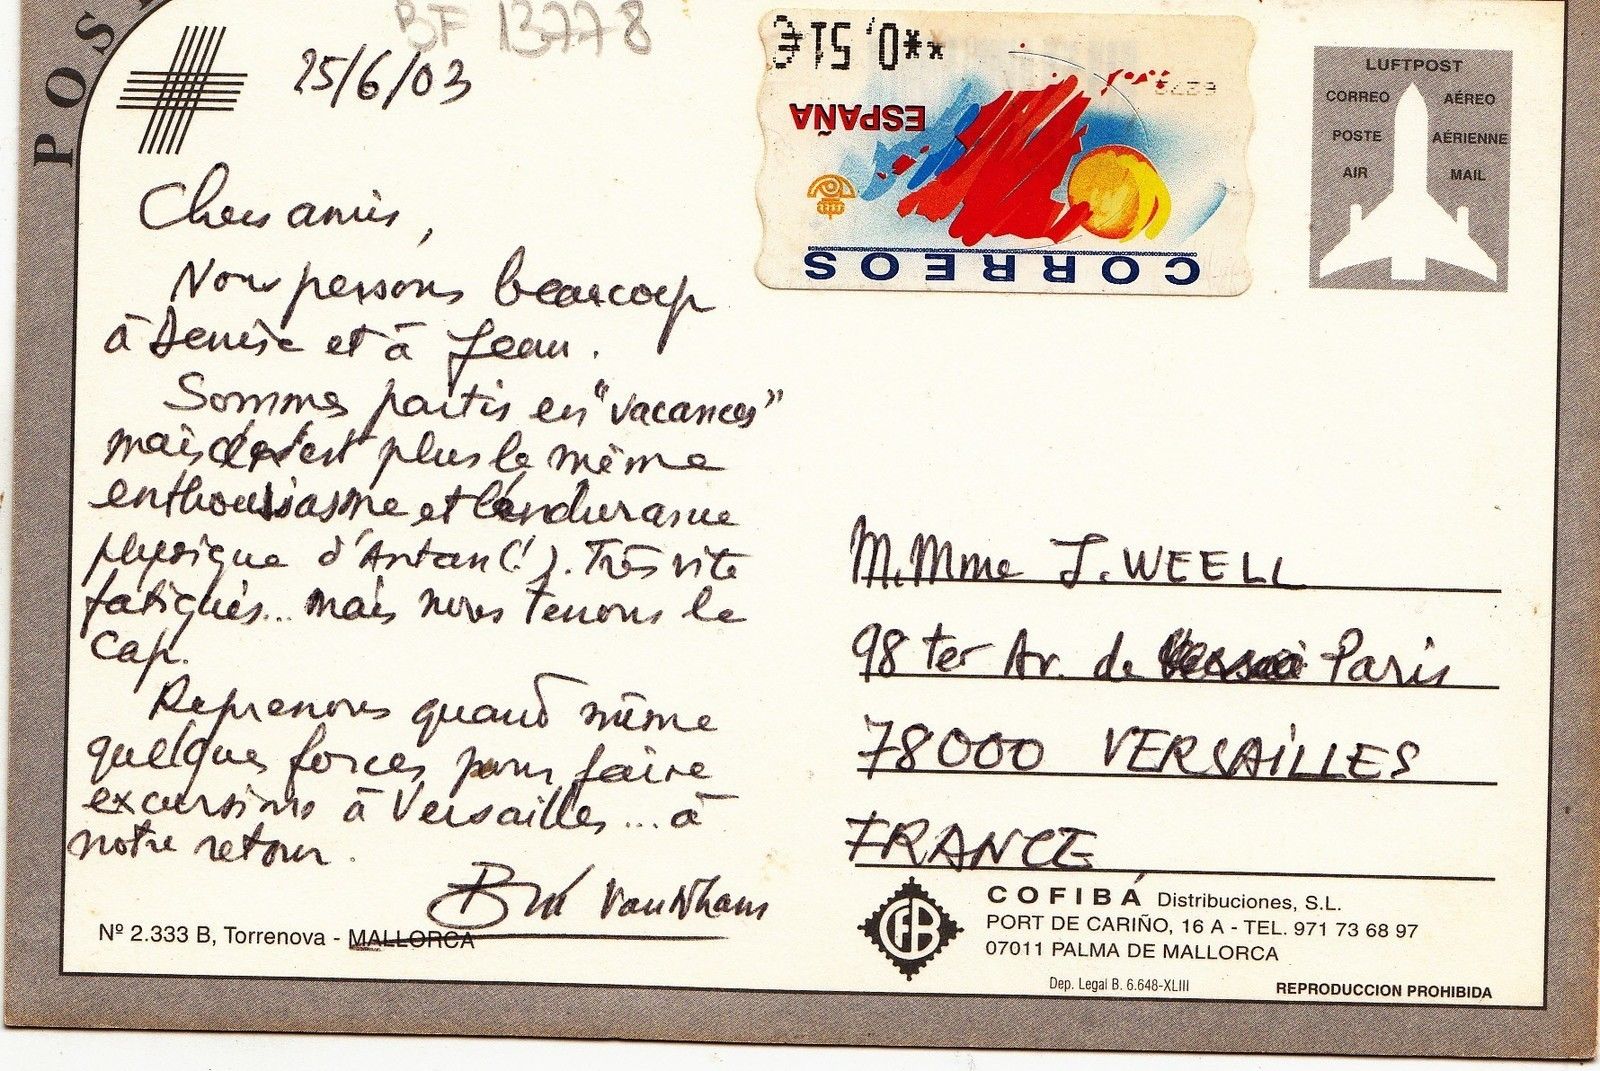 POS
BF 13778
25/6/03
Chers amis,
Nous pensons beaucoup
à Denise et à Jean.
Sommes partis en "vacances"
mais c'est plus le même
enthousiasme et l'endurance
physique d'Antan(!). Très vite
fatigués... mais nous tenons le
cap.
Reprenons quand même
quelques forces pour faire
excursions à Versailles... à
notre retour.
Nº 2.333 B, Torrenova - MALLORCA
**0,51€
ESPAÑA
CORREOS
LUFTPOST
CORREO AÉREO
POSTE AÉRIENNE
AIR MAIL
M. Mme J. WEELL
98 ter Av. de Paris
78000 VERSAILLES
FRANCE
CFB
COFIBÁ Distribuciones, S.L.
PORT DE CARIÑO, 16 A - TEL. 971 73 68 97
07011 PALMA DE MALLORCA
Dep. Legal B. 6.648-XLIII
REPRODUCCION PROHIBIDA